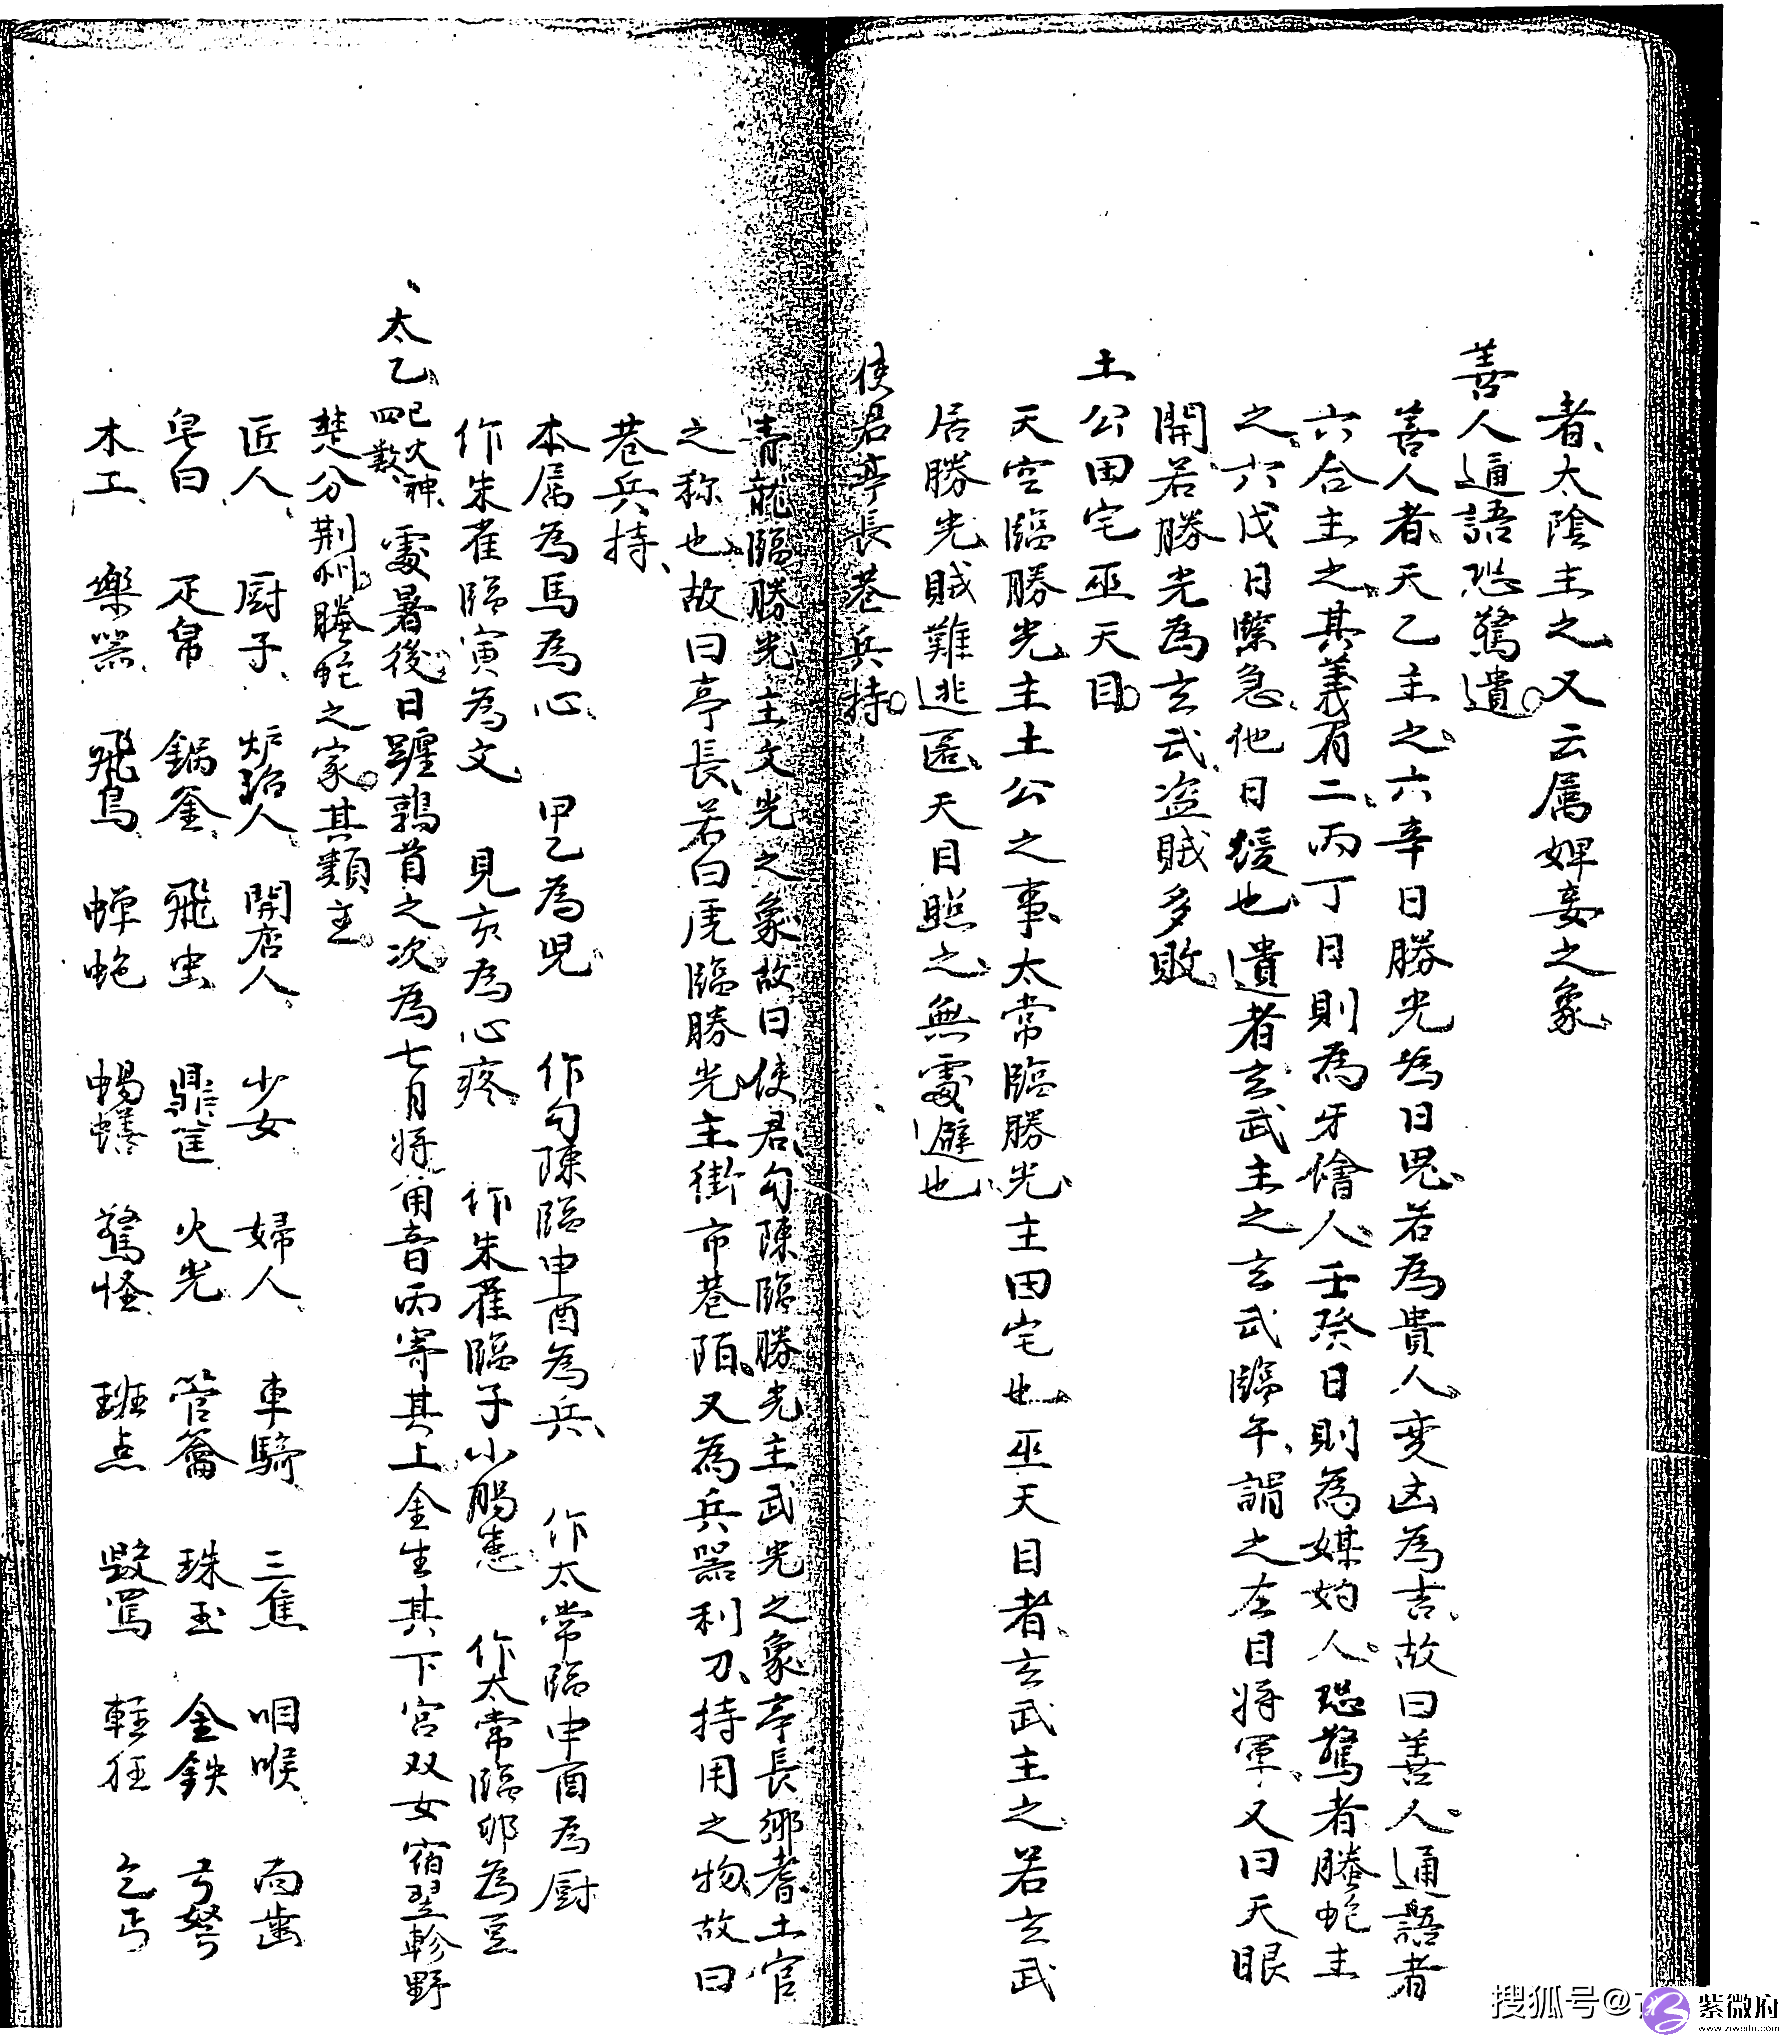 者、太陰主之、又云属婢妾之象、
善人通語恐驚遺。
善人者、天乙主之。六辛日勝光為日鬼、若為貴人、变凶為吉、故曰善人。通語者
六合主之、其義有二、丙丁日則為牙儈人、壬癸日則為媒妁人。恐驚者螣蛇主
之、六戊日緊急、他日緩也、遺者玄武主之、玄武臨午、謂之左目将軍、又曰天眼
開、若勝光為玄武、盗賊多敗、
土公田宅巫天目。
天空臨勝光、主土公之事、太常臨勝光、主田宅也、巫天目者、玄武主之、若玄武
居勝光、賊難逃匿、天目照之、無處避也、
使君亭長巷兵持。
青龍臨勝光主文光之象故曰使君、勾陳臨勝光主武光之象亭長鄉耆土官
之称也、故曰亭長、若白虎臨勝光、主街市巷陌、又為兵器利刀、持用之物、故曰
巷兵持、
本属為馬為心、 甲乙為児、 作勾陳臨申酉為兵、 作太常臨申酉為厨
作朱雀臨寅為文 見亥為心疼 作朱雀臨子小腸患 作太常臨卯為豆
太乙、巳火神、四数、處暑後、日躔鶉首之次、為七月将、角音丙寄其上金生其下宮双女宿翌軫野
楚分荆州、螣蛇之家。其類主。
匠人、 厨子、 炉冶人、 開店人、 少女、 婦人、 車騎、 三焦 咽喉、 面歯
皂白、 疋帛 鍋釜、 飛虫 鼎筐 火光 管籥 珠玉 金鉄 弓弩
木工、 樂器、 飛鳥、 蝉蚫 蝎蟮 驚怪、 班点 毀罵 軽狂 乞丐
搜狐号@
紫微府
www.ziweifu.com